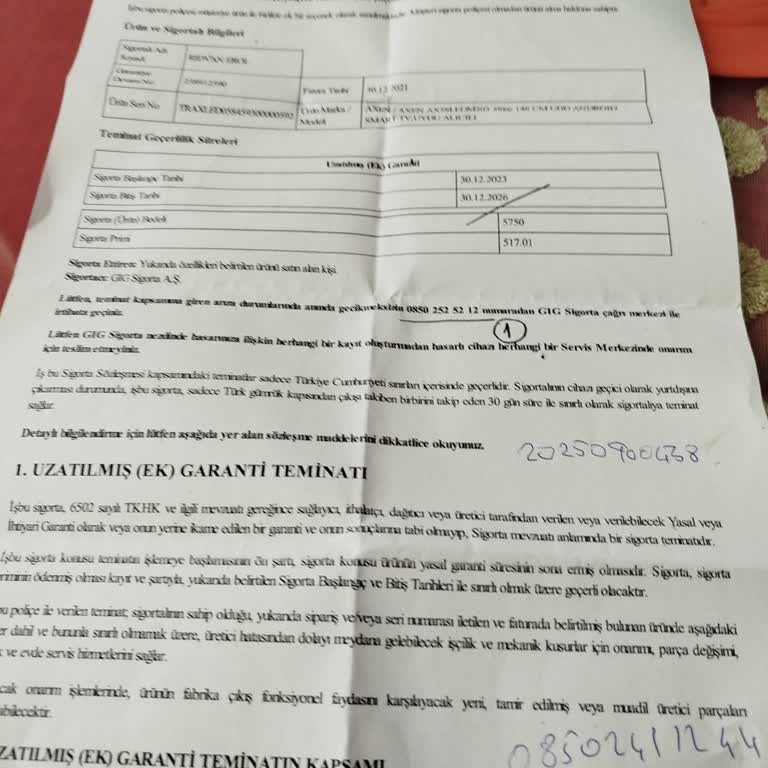 Ürün ve Sigortalı Bilgileri
Sigortalı Adı Soyadı
RIDVAN EROL
Fatura Tarihi 30.12.2021
Ürün Seri No
Ürün Marka / Modeli
SMART TV,UYDU ALICILI
Teminat Geçerlilik Süreleri
Uzatılmış (Ek) Garanti
Sigorta Başlangıç Tarihi 30.12.2023
Sigorta Bitiş Tarihi 30.12.2026
Sigorta (Ürün) Bedeli 5750
Sigorta Primi 517.01
Sigorta Ettiren: Yukarıda özellikleri belirtilen ürünü satın alan kişi.
Sigortacı: GIG Sigorta A.Ş.
Lütfen, teminat kapsamına giren arıza durumlarında anında gecikmeksizin 0850 252 52 12 numaradan GIG Sigorta çağrı merkezi ile
irtibata geçiniz.
1
Lütfen GIG Sigorta nezdinde hasarınıza ilişkin herhangi bir kayıt oluşturmadan hasarlı cihazı herhangi bir Servis Merkezinde onarım
için teslim etmeyiniz.
İş bu Sigorta Sözleşmesi kapsamındaki teminatlar sadece Türkiye Cumhuriyeti sınırları içerisinde geçerlidir. Sigortalının cihazı geçici olarak yurtdışına
çıkarması durumunda, işbu sigorta, sadece Türk gümrük kapısından çıkışı takiben birbirini takip eden 30 gün süre ile sınırlı olarak sigortalıya teminat
sağlar.
Detaylı bilgilendirme için lütfen aşağıda yer alan sözleşme maddelerini dikkatlice okuyunuz.
20250900438
1. UZATILMIŞ (EK) GARANTİ TEMİNATI
İşbu sigorta, 6502 sayılı TKHK ve ilgili mevzuatı gereğince sağlayıcı, ithalatçı, dağıtıcı veya üretici tarafından verilen veya verilebilecek Yasal veya
İhtiyari Garanti olarak veya onun yerine ikame edilen bir garanti ve onun sonuçlarına tabi olmayıp, Sigorta mevzuatı anlamında bir sigorta teminatıdır.
İşbu sigorta konusu teminatın işlemeye başlamasının ön şartı, sigorta konusu ürünün yasal garanti süresinin sona ermiş olmasıdır. Sigorta, sigorta
priminin ödenmiş olması kayıt ve şartıyla, yukarıda belirtilen Sigorta Başlangıç ve Bitiş Tarihleri ile sınırlı olmak üzere geçerli olacaktır.
bu poliçe ile verilen teminat; sigortalının sahip olduğu, yukarıda sipariş ve/veya seri numarası iletilen ve faturada belirtilmiş bulunan üründe aşağıdaki
er dahil ve bununla sınırlı olmamak üzere, üretici hatasından dolayı meydana gelebilecek işçilik ve mekanik kusurlar için onarımı, parça değişimi,
ve evde servis hizmetlerini sağlar.
cak onarım işlemlerinde, ürünün fabrika çıkış fonksiyonel faydasını karşılayacak yeni, tamir edilmiş veya muadil üretici parçaları
abilecektir.
ZATILMIŞ (EK) GARANTİ TEMİNATIN KAPSAMI
08502411244